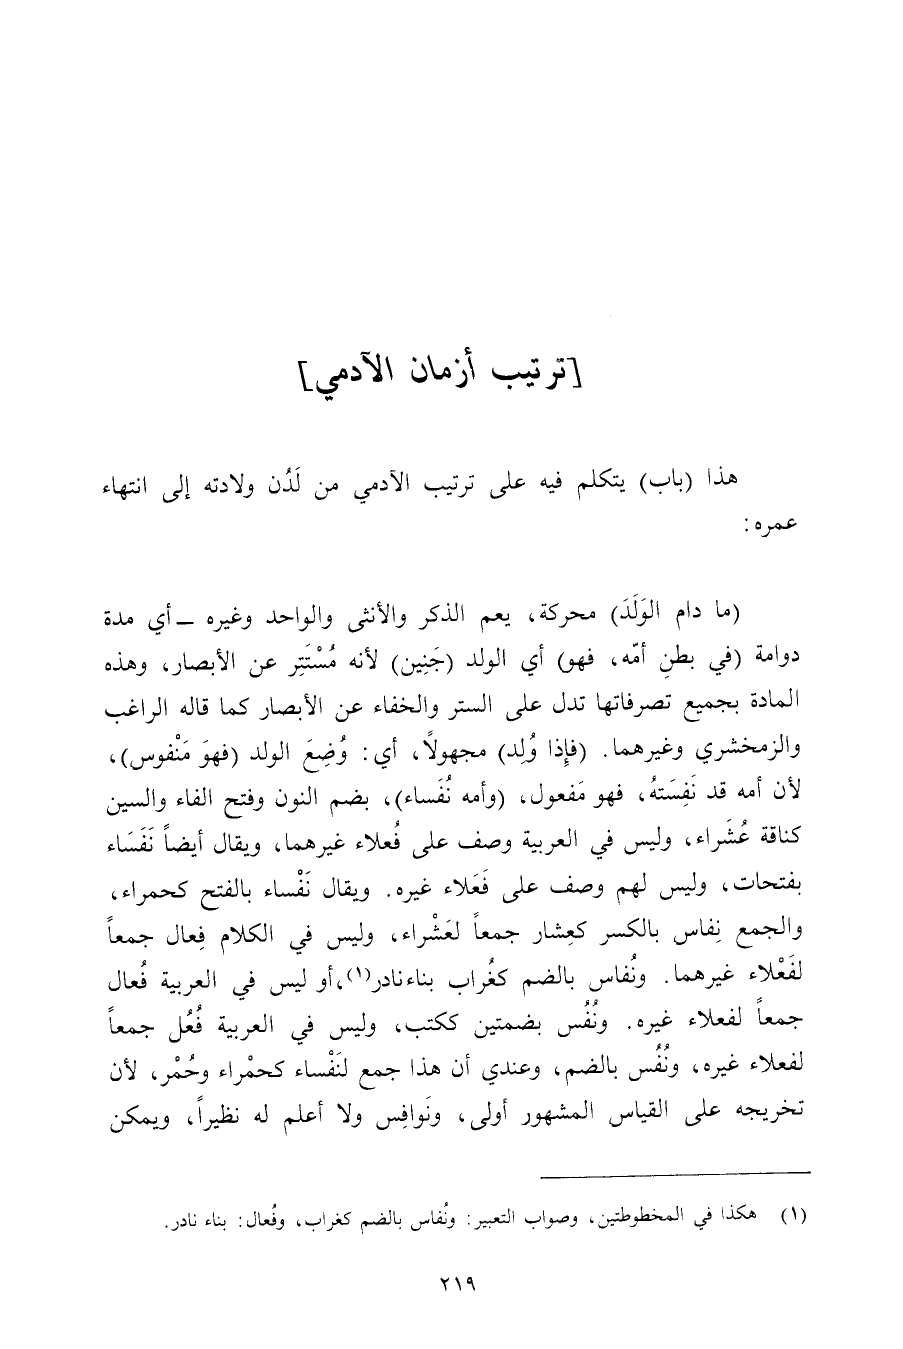 [ترتيب أزمان الآدمي]
هذا (باب) يتكلم فيه على ترتيب الآدمي من لَدُن ولادته إلى انتهاء
عمره :
(ما دام الوَلَدَ) محركة، يعم الذكر والأنثى والواحد وغيره ــ أي مدة
دوامة (في بطنِ أمّه، فهو) أي الولد (جَنِين) لأنه مُسْتَتِر عن الأبصار، وهذه
المادة بجميع تصرفاتها تدل على الستر والخفاء عن الأبصار كما قاله الراغب
والزمخشري وغيرهما. (فإِذا وُلِد) مجهولًا، أي: وُضِعَ الولد (فهوَ مَنْفوس)،
لأن أمه قد نَفِسَتهُ، فهو مَفعول، (وأمه نُفَساء)، بضم النون وفتح الفاء والسين
كناقة عُشَراء، وليس في العربية وصف على فُعلاء غيرهما، ويقال أيضاً نَفَسَاء
بفتحات، وليس لهم وصف على فَعَلاء غيره. ويقال نَفْساء بالفتح كحمراء،
والجمع نِفاس بالكسر كعِشار جمعاً لعَشْراء، وليس في الكلام فِعال جمعاً
لفَعْلاء غيرهما. ونُفاس بالضم كغُراب بناءنادر(١)، أو ليس في العربية فُعال
جمعاً لفعلاء غيره. ونُفُس بضمتين ككتب، وليس في العربية فُعُل جمعاً
لفعلاء غيره، ونُفُس بالضم، وعندي أن هذا جمع لنَفْساء كحمْراء وحُمْر، لأن
تخريجه على القياس المشهور أولى، ونَوافِس ولا أعلم له نظيراً، ويمكن
(١) هكذا في المخطوطتين، وصواب التعبير: ونُفاس بالضم كغراب، وفُعال: بناء نادر.
٢١٩